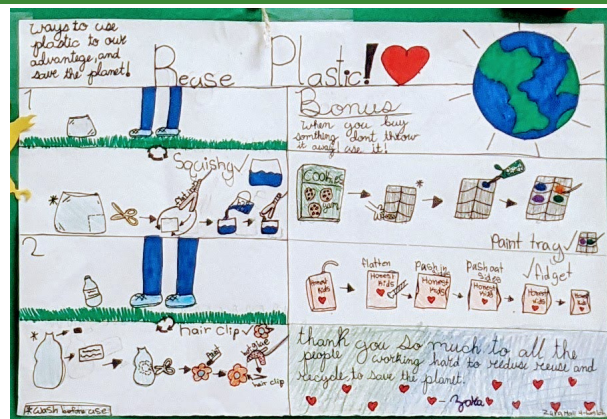 ways to use
plastic to our
advantege, and
save the planet!
Reuse Plastic!
1
Squishy
2
hair clip
Paint
Glue
hair clip
*wash before use
Bonus
When you buy
somthing dont throw
it away! use it!
Cookies
Paint tray
flatten
Push in
Push out
sides
Fidget
Honest
Kids
Honest
Kids
Honest
Kids
Honest
Kids
Honest
Kids
thank you so much to all the
people working hard to reduse reuse and
recycle to save the planet.